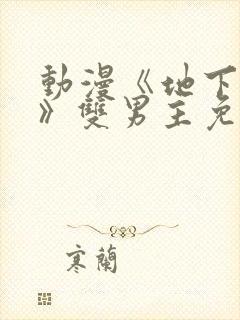 動漫《地下
》雙男主免
寒蘭